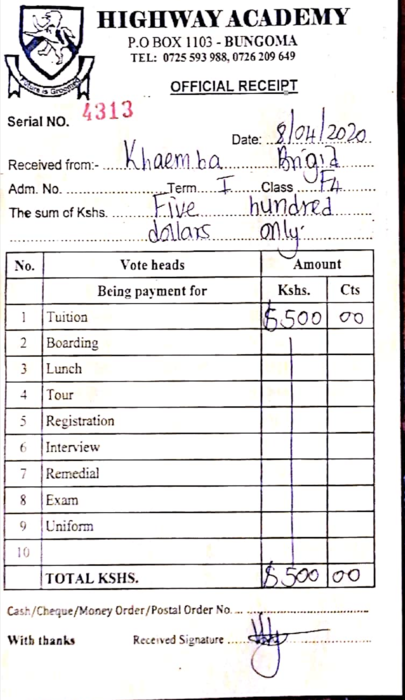 HIGHWAY ACADEMY
P.O BOX 1103 - BUNGOMA
TEL: 0725 593 988, 0726 209 649
Future is Groomed
OFFICIAL RECEIPT
Serial NO. 4313
Date: 8/04/2020
Received from:- Khaemba Brigid
Adm. No. Term I Class F4
The sum of Kshs. Five hundred
dollars only.
No. Vote heads Amount
Being payment for Kshs. Cts
1 Tuition $500 00
2 Boarding
3 Lunch
4 Tour
5 Registration
6 Interview
7 Remedial
8 Exam
9 Uniform
10
TOTAL KSHS. $500 00
Cash/Cheque/Money Order/Postal Order No.
With thanks Received Signature